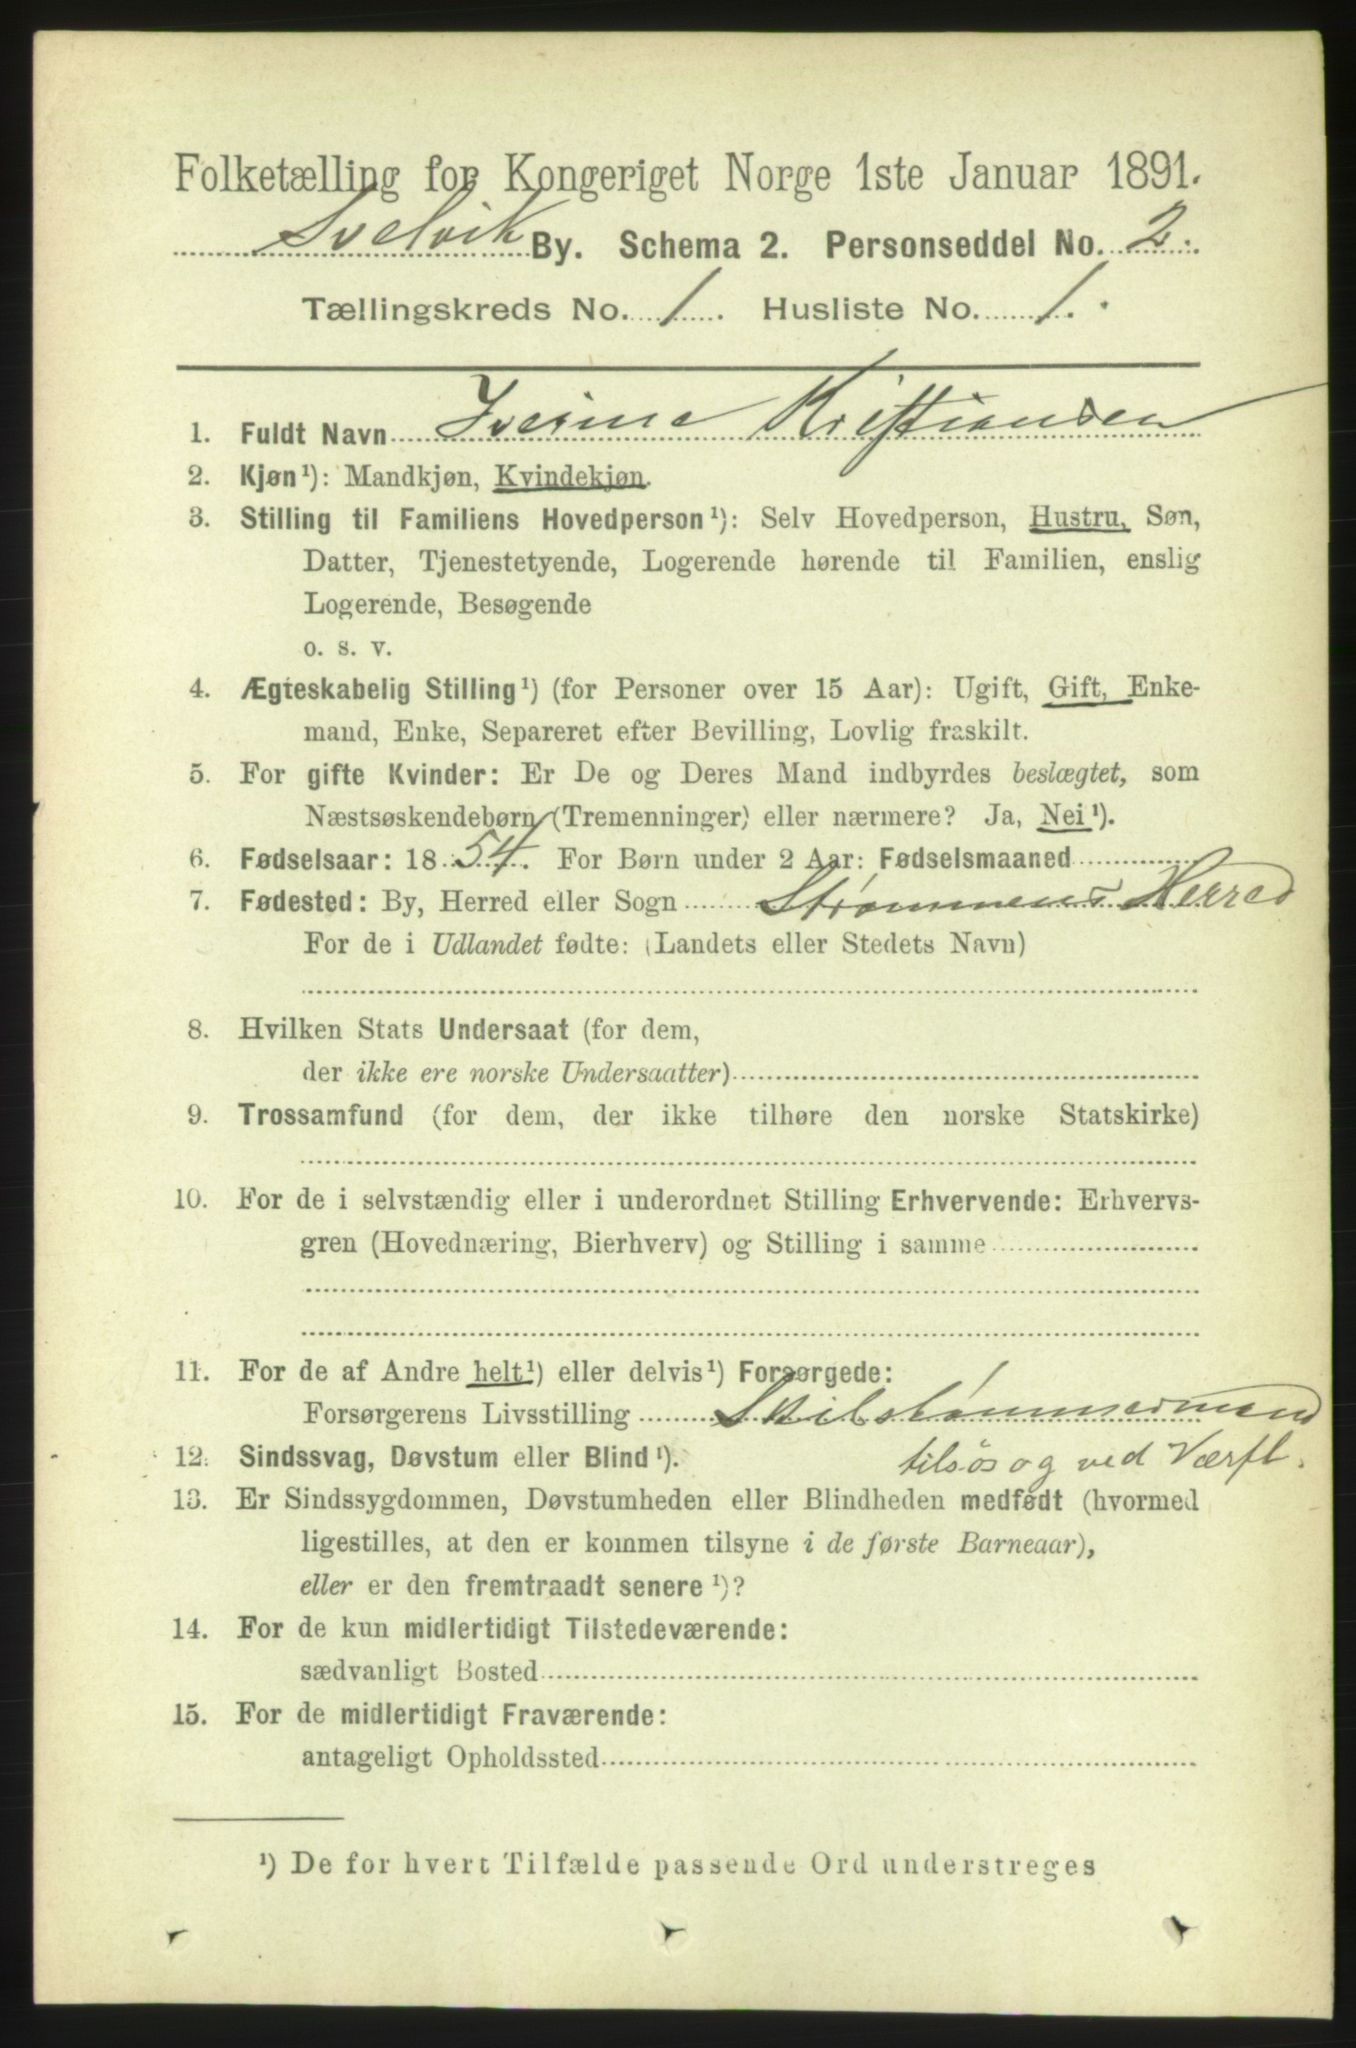 Folketælling for Kongeriget Norge 1ste Januar 1891.
Svelvik By. Schema 2. Personseddel No. 2.
Tællingskreds No. 1. Husliste No. 1.
1. Fuldt Navn Iverine Kristiansen
2. Kjøn¹): Mandkjøn, Kvindekjøn.
3. Stilling til Familiens Hovedperson¹): Selv Hovedperson, Hustru, Søn,
Datter, Tjenestetyende, Logerende hørende til Familien, enslig
Logerende, Besøgende
o. s. v.
4. Ægteskabelig Stilling¹) (for Personer over 15 Aar): Ugift, Gift, Enke-
mand, Enke, Separeret efter Bevilling, Lovlig fraskilt.
5. For gifte Kvinder: Er De og Deres Mand indbyrdes beslægtet, som
Næstsøskendebørn (Tremenninger) eller nærmere? Ja, Nei¹).
6. Fødselsaar: 1854. For Børn under 2 Aar: Fødselsmaaned
7. Fødested: By, Herred eller Sogn Strømmens Herred
For de i Udlandet fødte: (Landets eller Stedets Navn)
8. Hvilken Stats Undersaat (for dem,
der ikke ere norske Undersaatter)
9. Trossamfund (for dem, der ikke tilhøre den norske Statskirke)
10. For de i selvstændig eller i underordnet Stilling Erhvervende: Erhvervs-
gren (Hovednæring, Bierhverv) og Stilling i samme
11. For de af Andre helt¹) eller delvis¹) Forsørgede:
Forsørgerens Livsstilling Skibstømmermand
tilsøs og ved Værft.
12. Sindssvag, Døvstum eller Blind¹).
13. Er Sindssygdommen, Døvstumheden eller Blindheden medfødt (hvormed
ligestilles, at den er kommen tilsyne i de første Barneaar),
eller er den fremtraadt senere¹)?
14. For de kun midlertidigt Tilstedeværende:
sædvanligt Bosted
15. For de midlertidigt Fraværende:
antageligt Opholdssted
¹) De for hvert Tilfælde passende Ord understreges